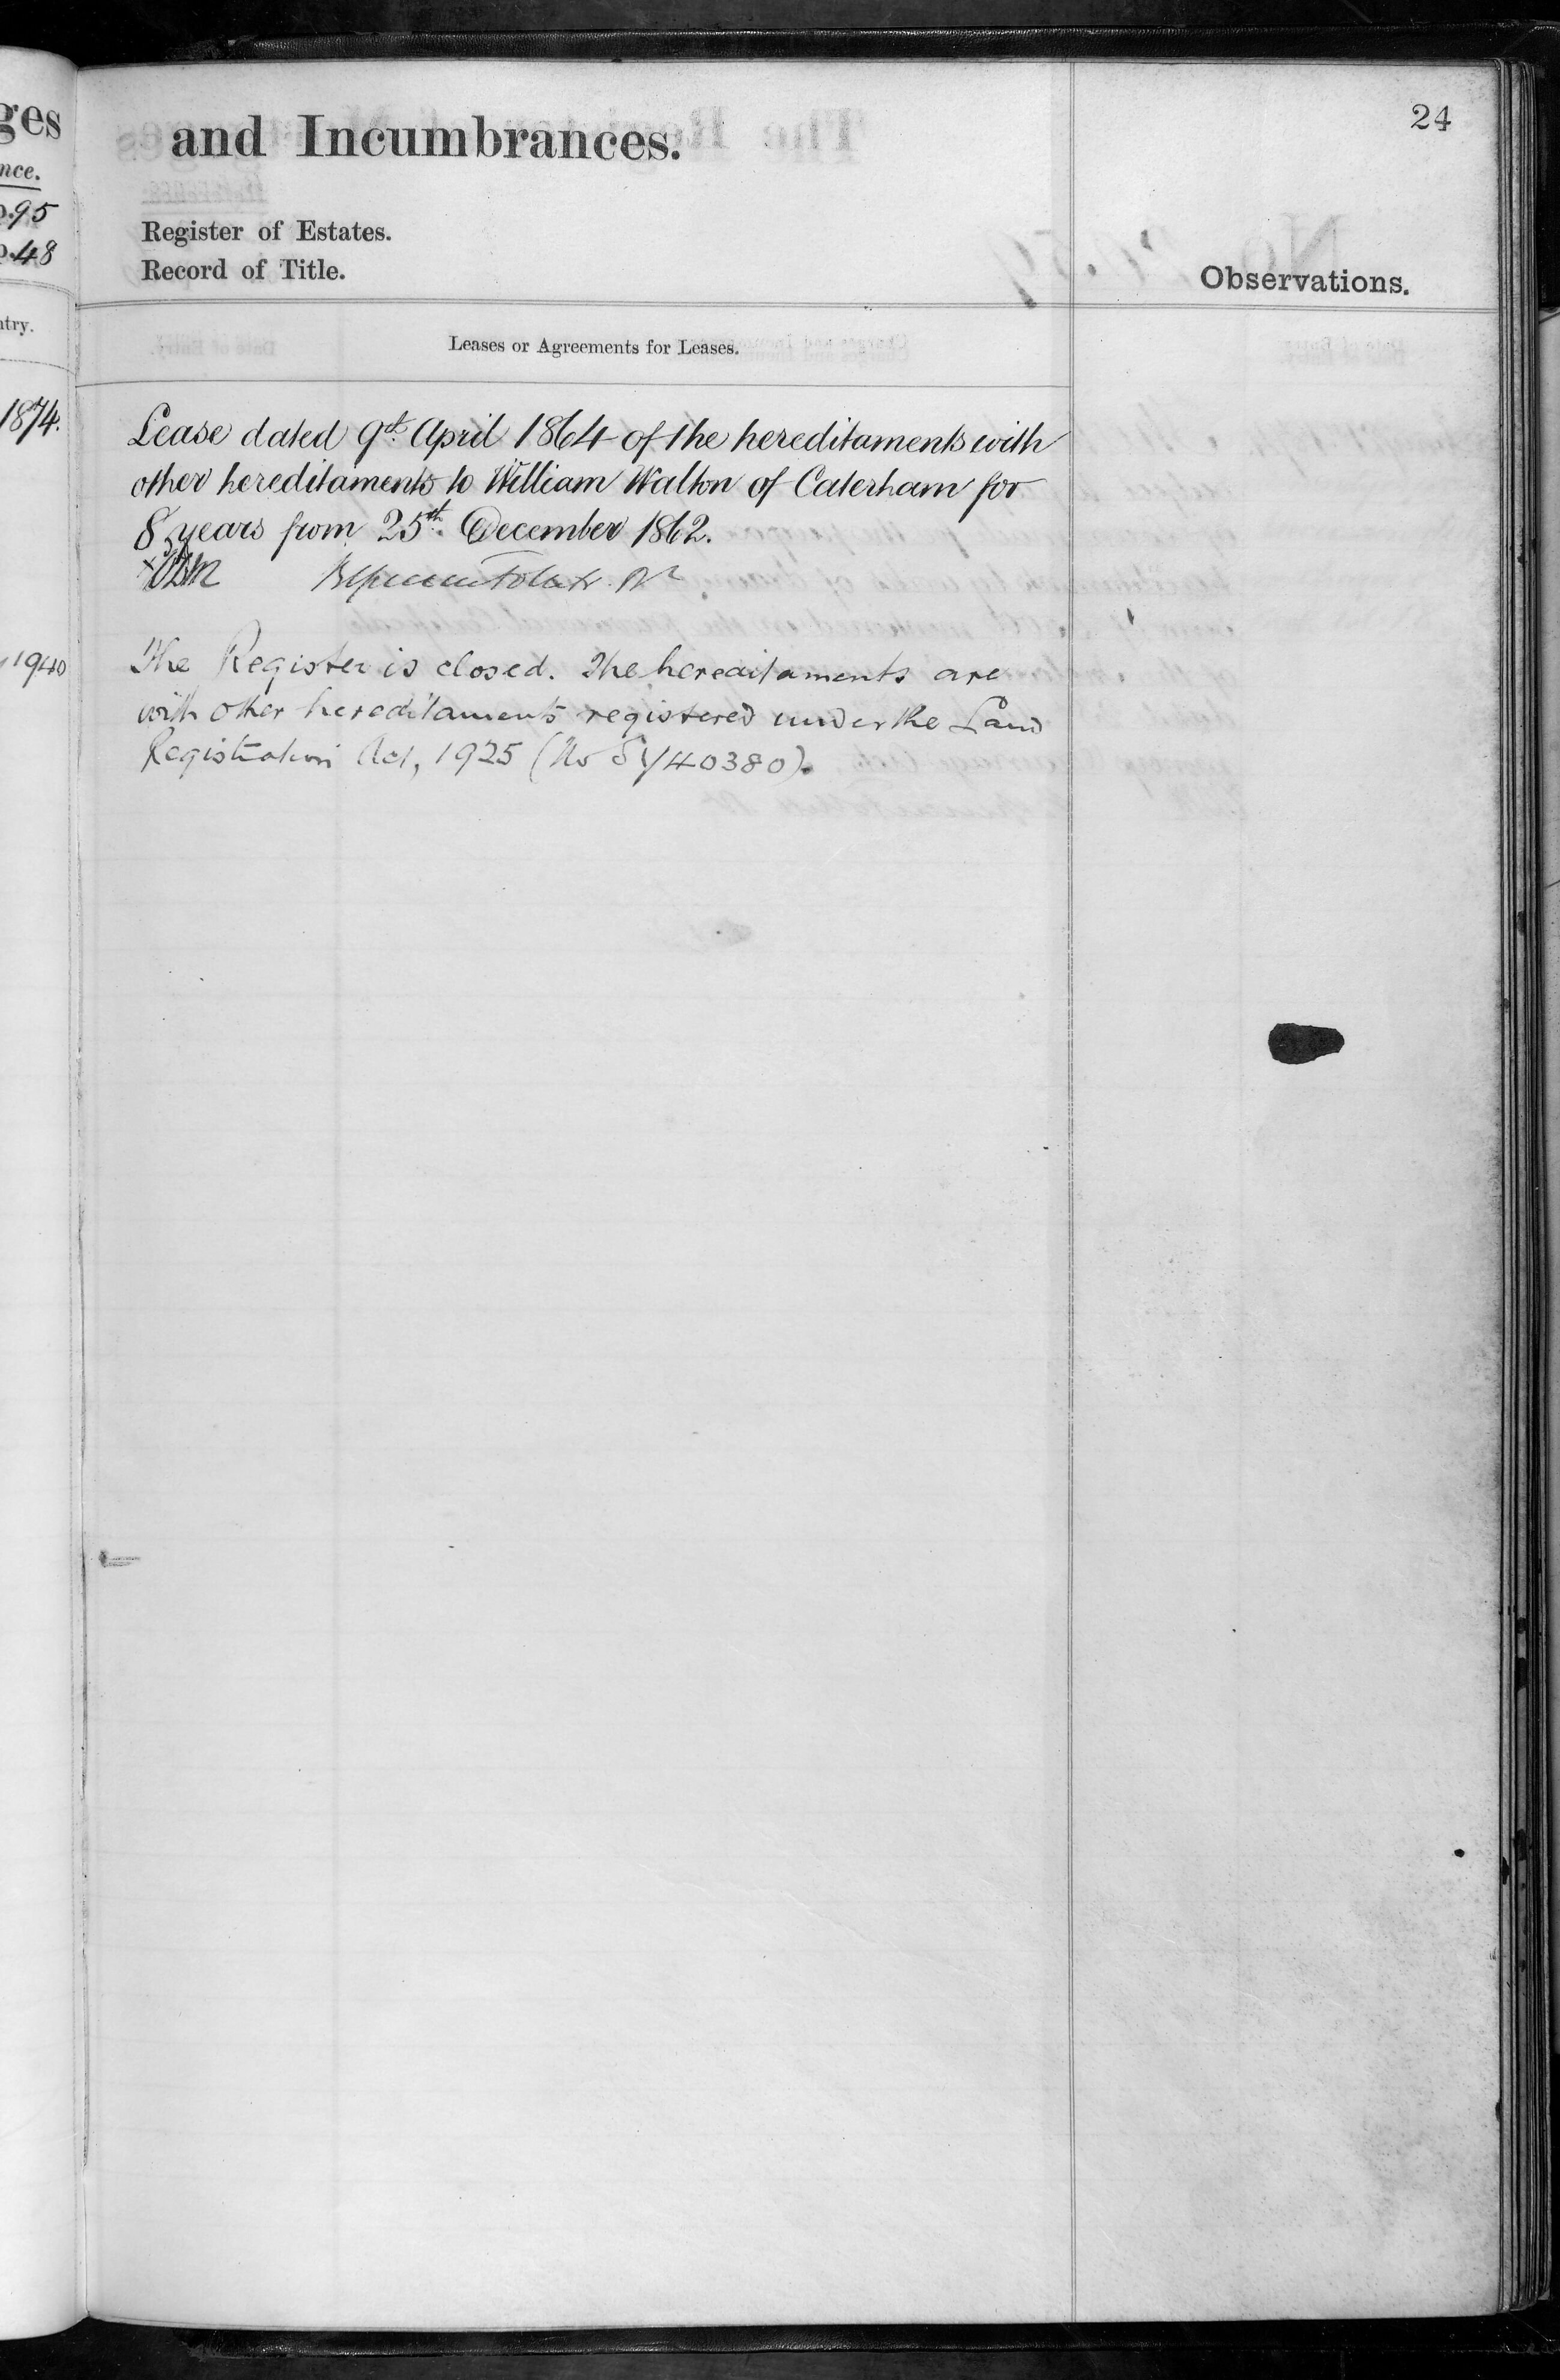 24
and Incumbrances.
Register of Estates.
Record of Title.
Observations.
Leases or Agreements for Leases.
Lease dated 9th April 1864 of the hereditaments with
other hereditaments to William Walton of Caterham for
8 years from 25th December 1862.
The Register is closed. The hereditaments are
with other hereditaments registered under the Land
Registration Act, 1925 (No SY40380).
ges
nce.
95
48
ntry.
1874.
1940